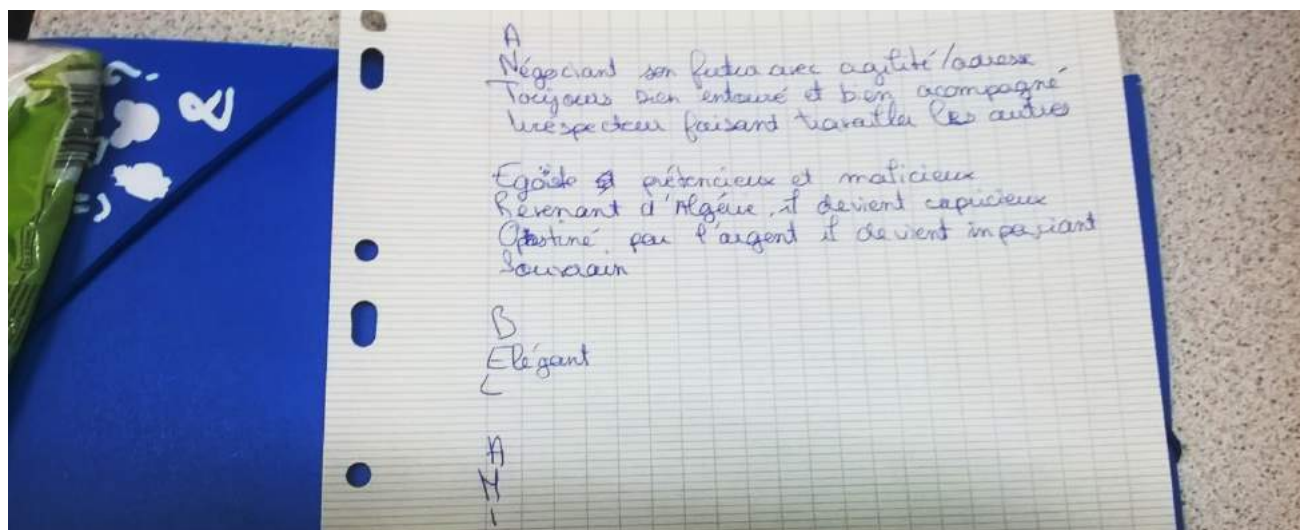 A
Négociant son futur avec agilité/adresse
Toujours bien entouré et bien acompagné
Irrespectueu faisant travailler les autres
Egoïste prétencieux et malicieux
Revenant d'Algérie, il devient capricieux
Obstiné par l'argent il devient impatiant
Souverain
B
Elégant
L
A
M
I